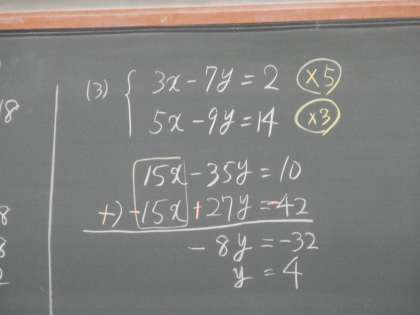 (3) { 3x - 7y = 2 ×5
5x - 9y = 14 ×3
15x - 35y = 10
+) -15x + 27y = -42
-8y = -32
y = 4
8
8
8